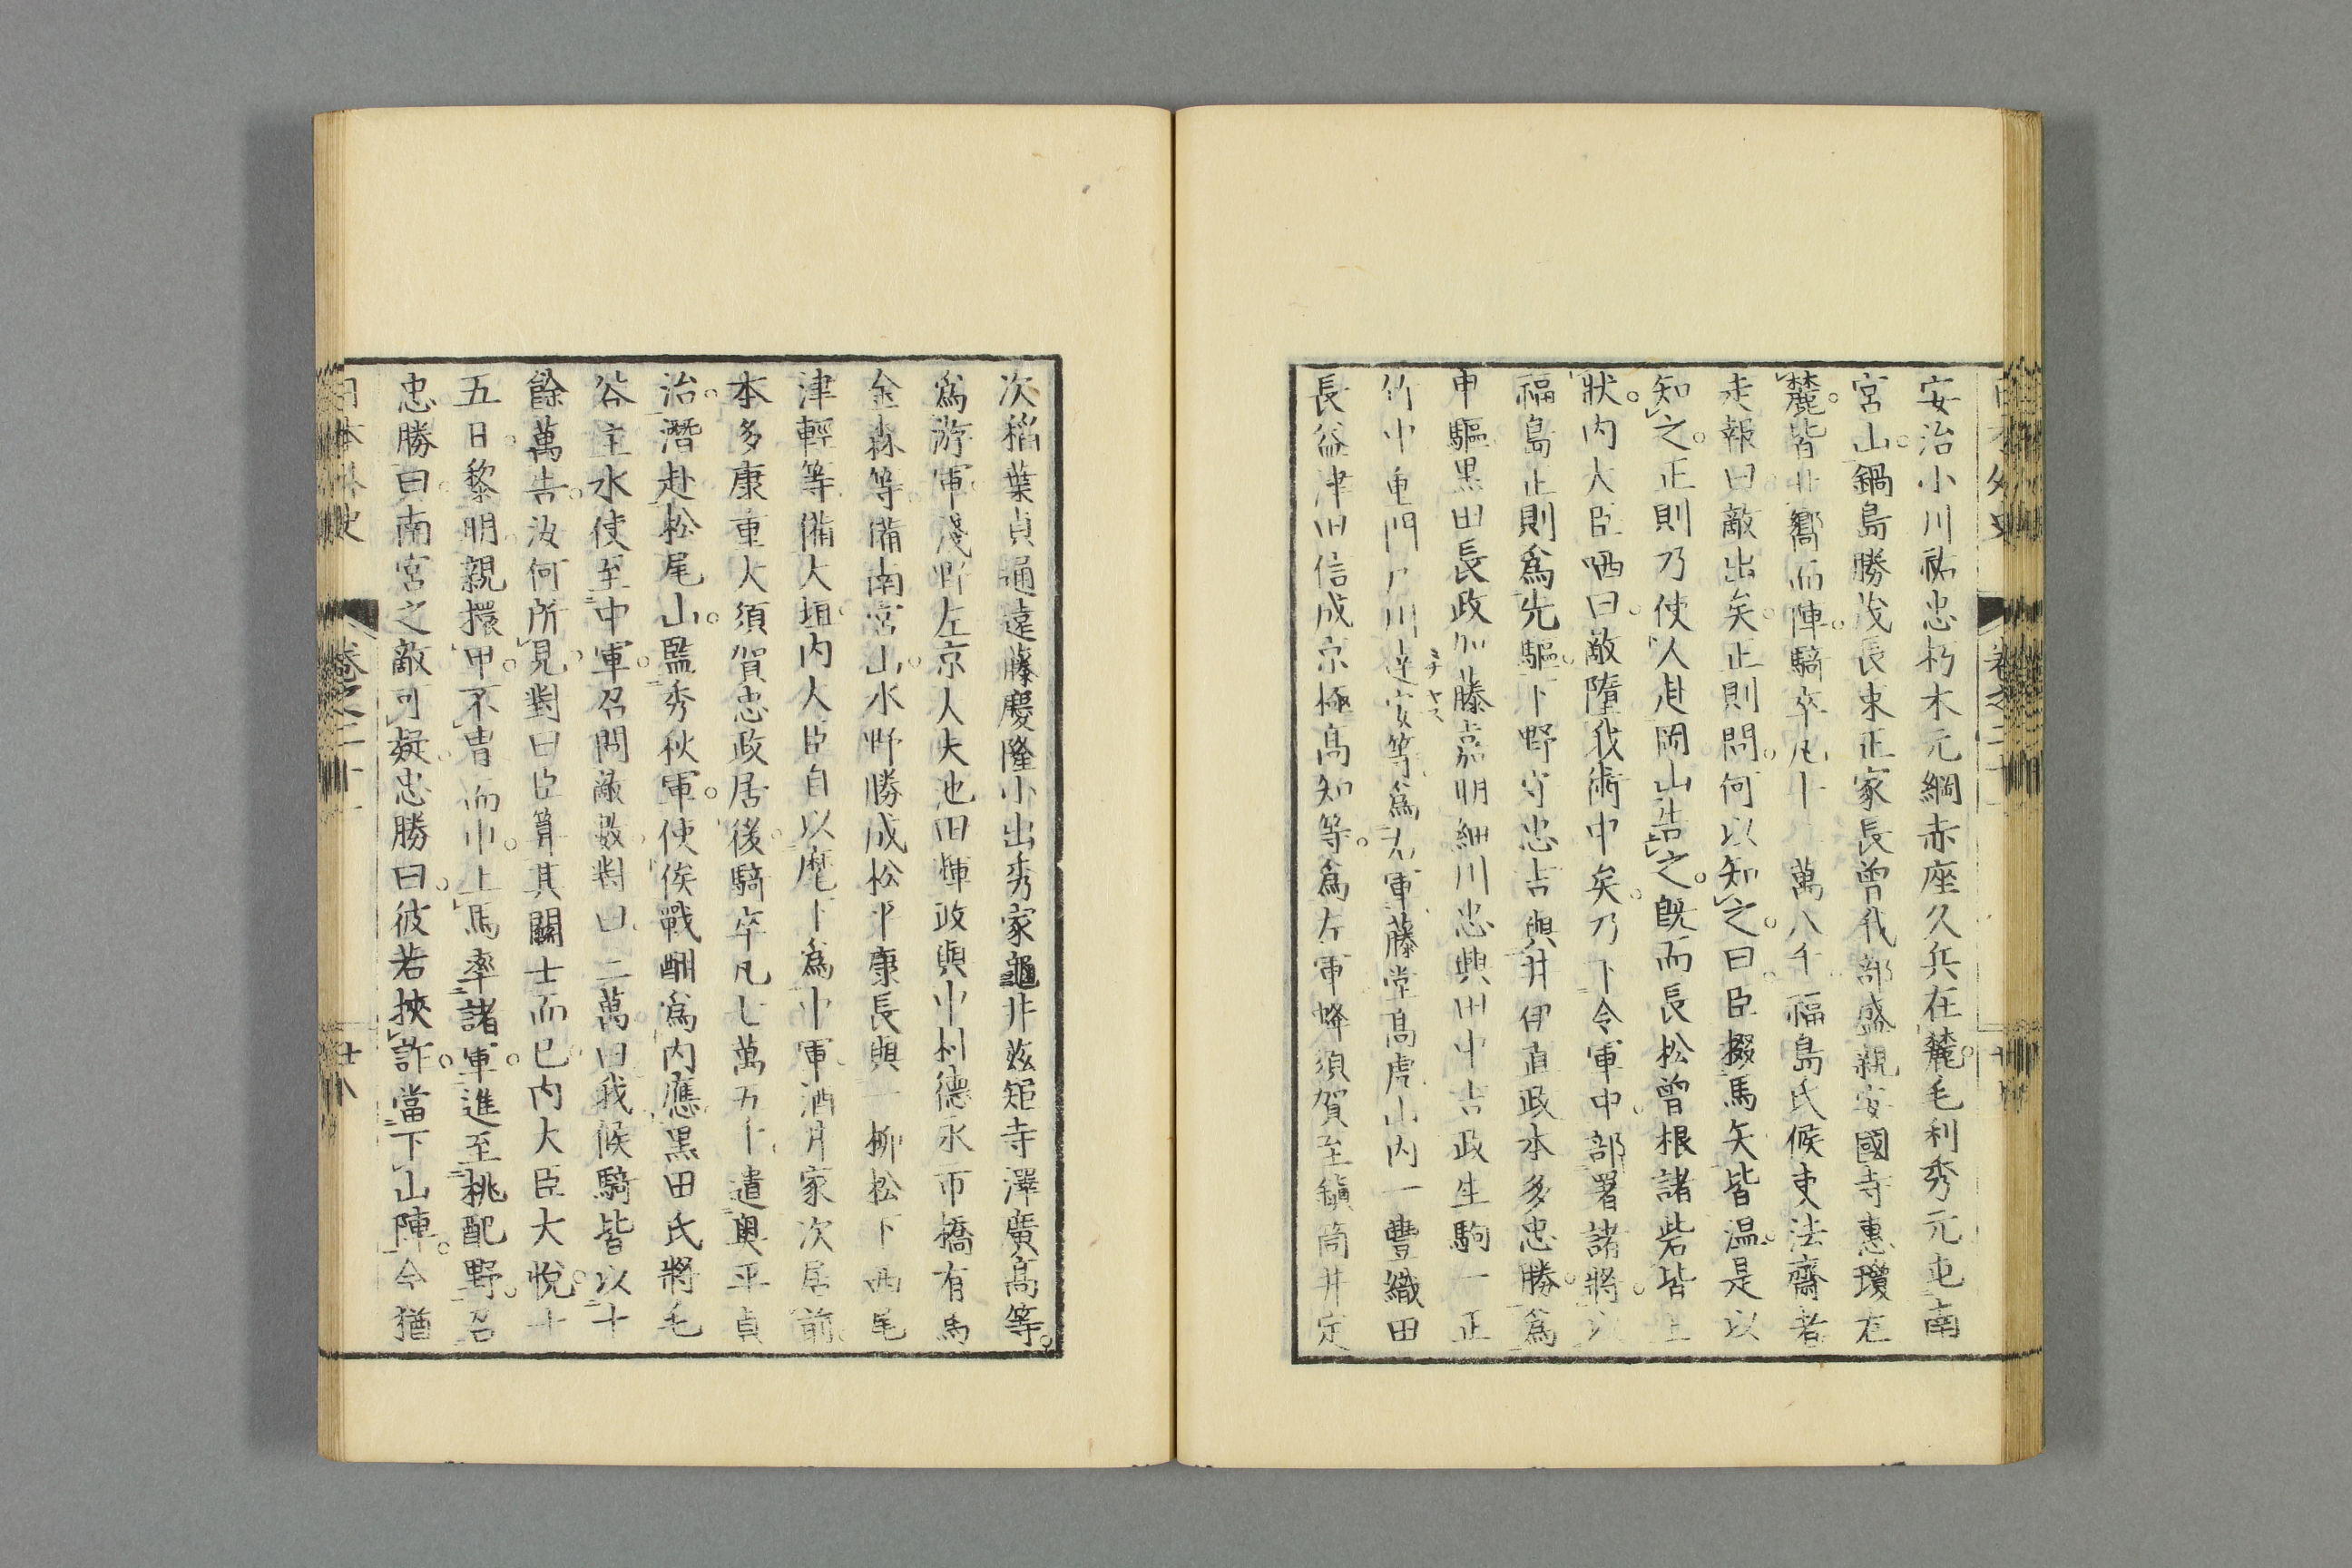 安治小川祐忠朽木元綱赤座久兵在麓毛利秀元屯南
宮山鍋島勝茂長束正家長曾我部盛親安國寺惠瓊在
麓皆北嚮而陣騎卒凡十 萬八千福島氏候吏法齋者
走報曰敵出矣正則問何以知之曰臣掇馬矢皆温是以
知之正則乃使人赴岡山告之既而長松曾根諸砦皆上
狀内大臣哂曰敵墮我術中矣乃下令軍中部署諸將以
福島正則爲先驅下野守忠吉與井伊直政本多忠勝爲
中驅黒田長政加藤嘉明細川忠興田中吉政生駒一正
竹中重門戸川逵安等爲右軍藤堂高虎山内一豐織田
長益津田信成京極高知等爲左軍蜂須賀至鎭筒井定
次稻葉貞通遠藤慶隆小出秀家龜井玆矩寺澤廣高等
爲游軍淺野左京大夫池田輝政與中村德永市橋有馬
金森等備南宮山水野勝成松平康長與一柳松下西尾
津輕等備大垣内大臣自以麾下爲中軍酒井家次居前
本多康重大須賀忠政居後騎卒凡七萬五千遣奥平貞
治潛赴松尾山監秀秋軍使俟戰酣爲内應黒田氏將毛
谷主水使至中軍召問敵數對曰二萬曰我候騎皆以十
餘萬告汝何所見對曰臣算其鬭士而已内大臣大悅十
五日黎明親擐甲不冑而巾上馬率諸軍進至桃配野召
忠勝曰南宮之敵可疑忠勝曰彼若挾詐當下山陣今猶
日本外史 卷之二十一 廿八